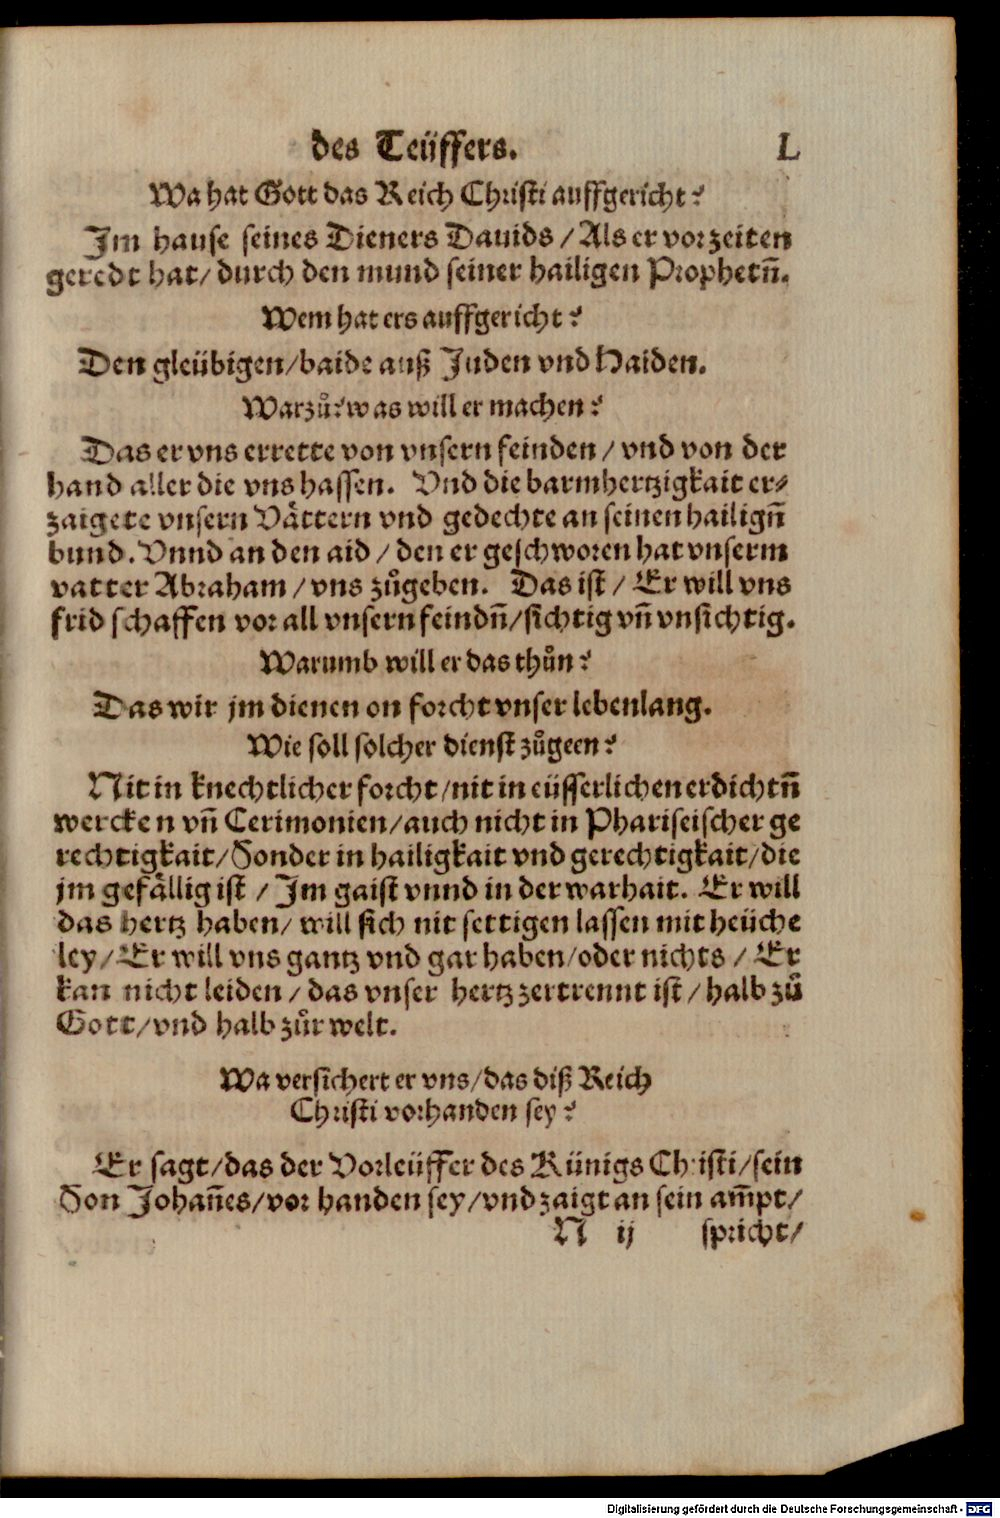 des Teüffers. L
Wa hat Gott das Reich Christi auffgericht?
Im hause seines Dieners Dauids / Als er vorzeiten
geredt hat / durch den mund seiner hailigen Prophetn̄.
Wem hat ers auffgericht?
Den gleübigen / baide auß Juden vnd Haiden.
Warzuͦ? was will er machen?
Das er vns errette von vnsern feinden / vnd von der
hand aller die vns hassen. Vnd die barmhertzigkait er⸗
zaigete vnsern Vättern vnd gedechte an seinen hailign̄
bund. Vnnd an den aid / den er geschworen hat vnserm
vatter Abraham / vns zuͦgeben. Das ist / Er will vns
frid schaffen vor all vnsern feindn̄ / sichtig vn̄ vnsichtig.
Warumb will er das thuͦn?
Das wir jm dienen on forcht vnser lebenlang.
Wie soll solcher dienst zuͦgeen?
Nit in knechtlicher forcht / nit in eüsserlichen erdichtn̄
wercken vn̄ Cerimonien / auch nicht in Phariseischer ge
rechtigkait / Sonder in hailigkait vnd gerechtigkait / die
jm gefällig ist / Im gaist vnnd in der warhait. Er will
das hertz haben / will sich nit settigen lassen mit heüche
ley / Er will vns gantz vnd gar haben / oder nichts / Er
kan nicht leiden / das vnser hertz zertrennt ist / halb zuͦ
Gott / vnd halb zuͦr welt.
Wa versichert er vns / das diß Reich
Christi vorhanden sey?
Er sagt / das der Vorleüffer des Künigs Christi / sein
Son Johan̄es / vor handen sey / vnd zaigt an sein am̄pt /
N ij spricht /
Digitalisierung gefördert durch die Deutsche Forschungsgemeinschaft - DFG